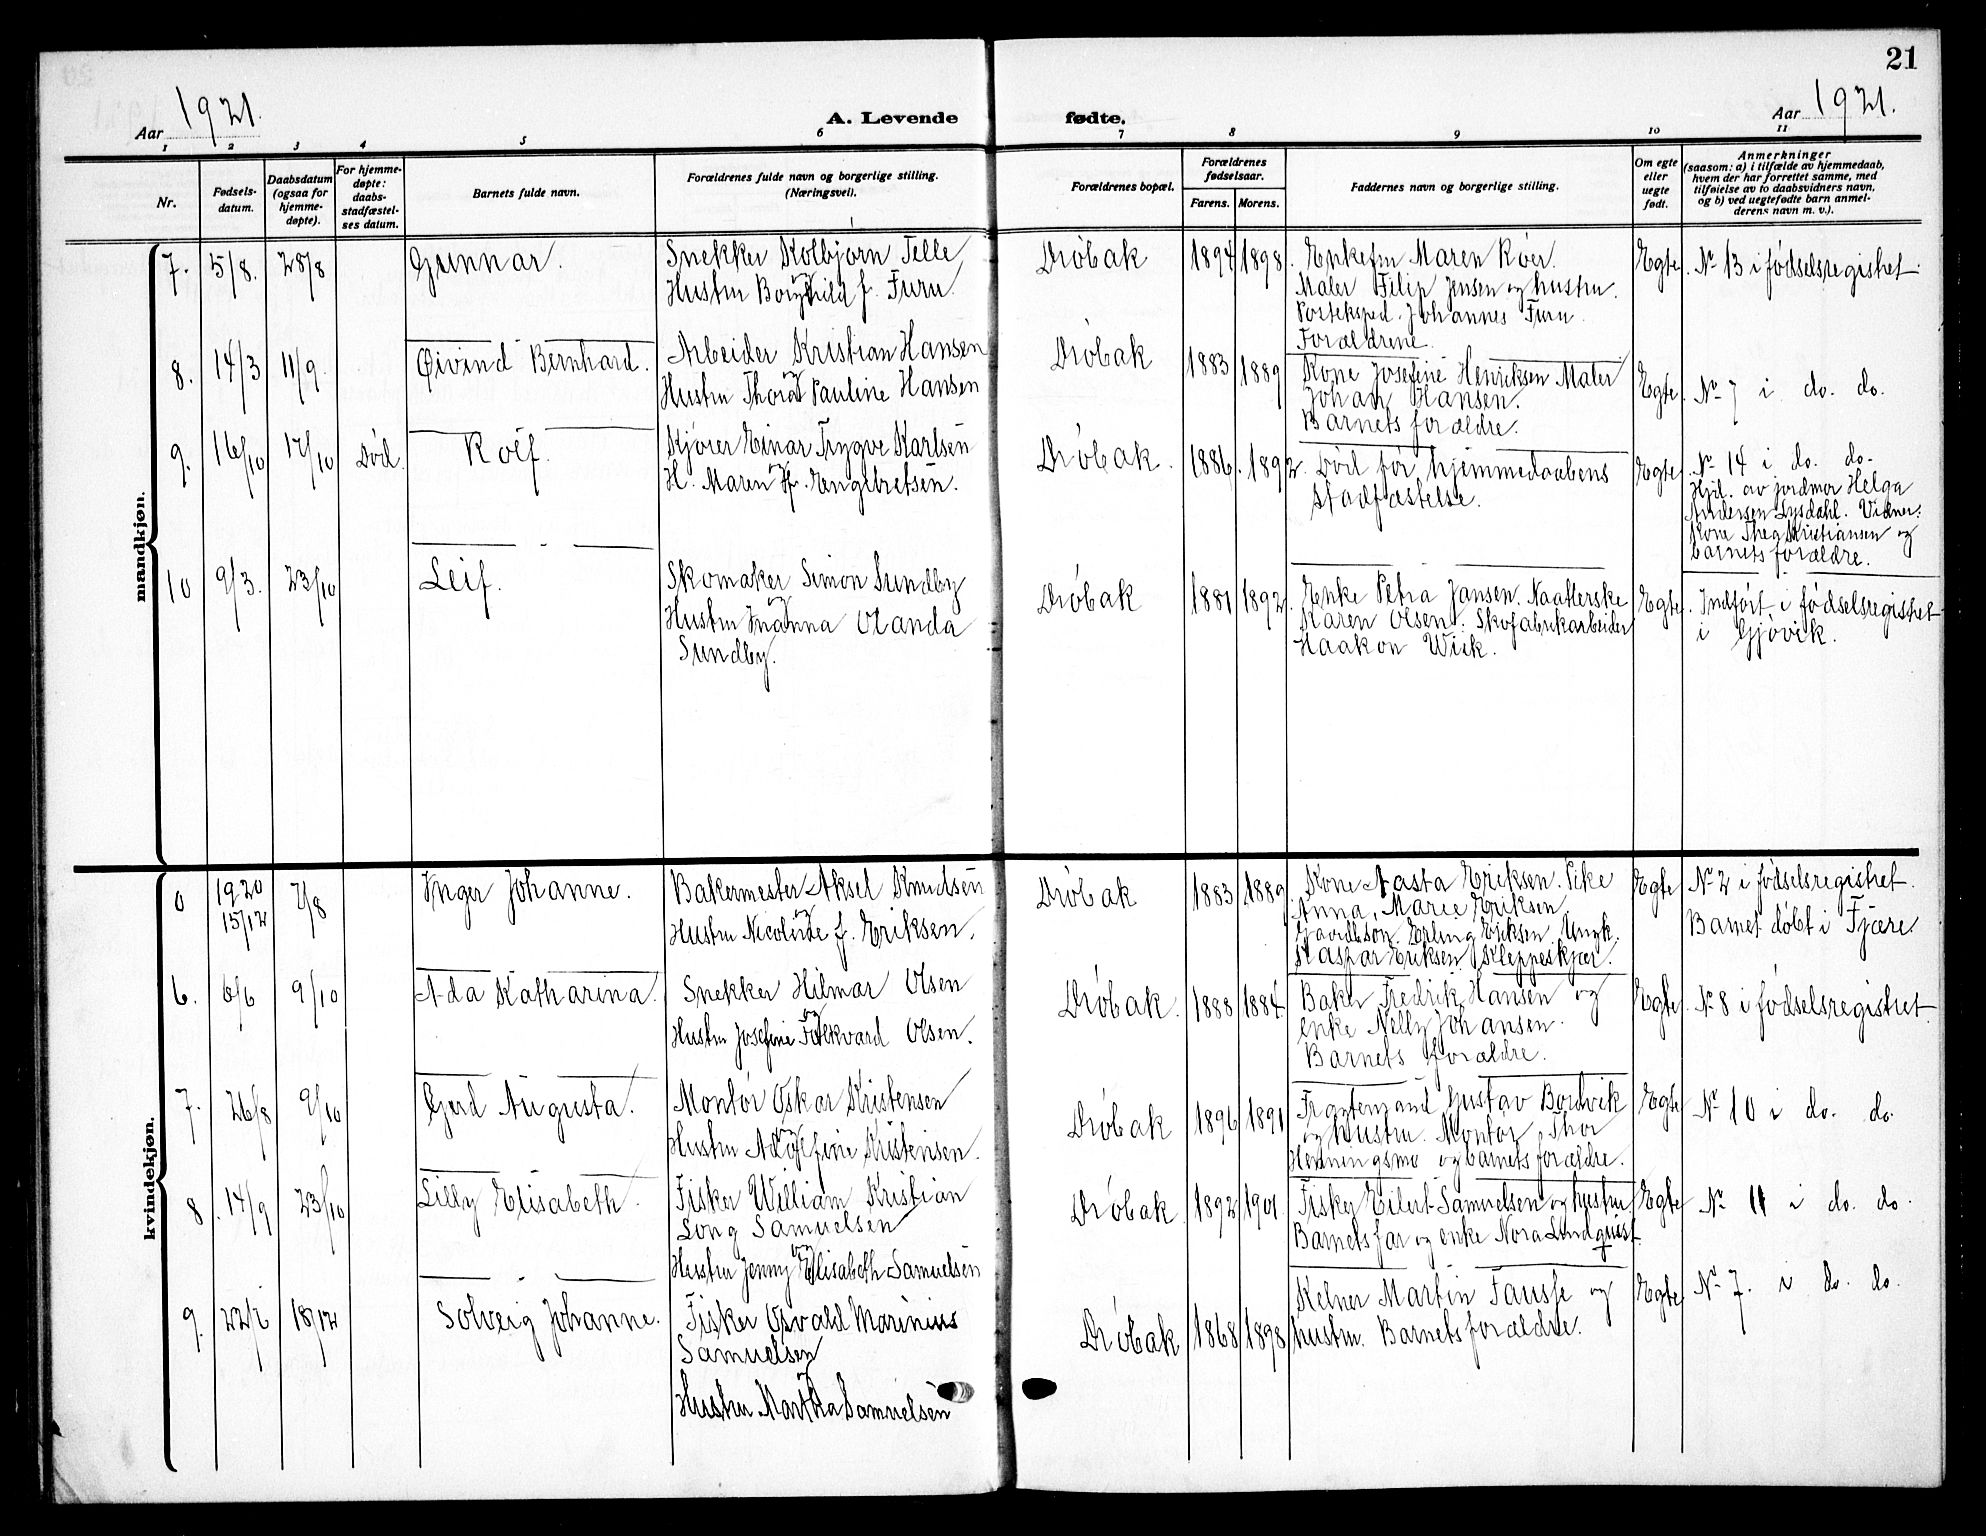 21
Aar 1921.
A. Levende fødte.
Aar 1921.
1 2 3 4 5 6 7 8 9 10 11
Nr.
Fødsels-
datum.
Daabsdatum
(ogsaa for
hjemme-
døpte).
For hjemme-
døpte:
daabs-
stadfæstel-
ses datum.
Barnets fulde navn.
Forældrenes fulde navn og borgerlige stilling.
(Næringsvei).
Forældrenes bopæl.
Forældrenes
fødselsaar.
Farens. Morens.
Faddernes navn og borgerlige stilling.
Om egte
eller
uegte
født.
Anmerkninger
(saasom: a) i tilfælde av hjemmedaab,
hvem der har forrettet samme, med
tilføielse av to daabsvidners navn,
og b) ved uegtefødte barn anmel-
derens navn m. v.).
mandkjøn.
7. 5/8. 28/8 Gunnar.
Snekker Kolbjørn Telle
og
Hustru Borghild f. Furu.
Drøbak 1894 1898.
Enkefru Maren Røer.
Maler Filip Jensen og hustru.
Posteksped. Johannes Furu.
Forældrene.
Egte. No 13 i fødselsregistret.
8. 14/3 11/9. Øivind Bernhard.
Arbeider Kristian Hansen
og
Hustru Thora Pauline Hansen
Drøbak 1883 1889
Kone Josefine Henriksen Maler
Johan Hansen.
Barnets forældre.
Egte. No 7 i do. do.
9. 16/10 17/10 død. Rolf.
Kjører Einar Trygve Karlsen
og
H. Maren f. Engebretsen.
Drøbak. 1886. 1892.
Død før hjemmedaabens
stadfæstelse.
Egte. No 14 i do. do.
Hjd. av jordmor Helga
Andersen Lysdahl. Vidner:
Kone Thea Kristiansen og
barnets forældre.
10 9/3. 23/10 Leif.
Skomaker Simon Sundby
og
Hustru Inanna Olanda
Sundby.
Drøbak 1881 1892.
Enke Petra Jansen. Naatlerske
Karen Olsen. Skofabrikarbeider
Haakon Wiik.
Egte. Indført i fødselsregistret
i Gjøvik.
kvindekjøn.
0 1920
15/12 7/8 Inger Johanne.
Bakermester Aksel Knudsen
og
Hustru Nicoline f. Eriksen.
Drøbak 1883 1889
Kone Aasta Eriksen. Pike
Anna Marie Eriksen
Erling Eriksen. Ungk.
Kaspar Eriksen Kleppeskjær.
Egte No 2 i fødselsregistret.
Barnet døbt i Fjære
6. 6/6 9/10 Ada Katharina.
Snekker Hilmar Olsen
og
Hustru Josefine Folkvard Olsen.
Drøbak. 1888 1884.
Baker Fredrik Hansen og
enke Nelly Johansen.
Barnets forældre.
Egte. No 8 i fødselsregistret.
7. 26/8 9/10 Gerd Augusta.
Montør Oskar Kristensen
og
Hustru Adolfine Kristensen.
Drøbak 1896 1891
Frøytemand Gustav Bordvik
og hustru. Montør Thor
Henningsmo og barnets forældre.
Egte. No 10 i do. do.
8 14/9 23/10 Lilly Elisabeth.
Fisker William Kristian
Long Samuelsen
og
Hustru Jenny Elisabeth Samuelsen
Drøbak. 1892 1901.
Fisker Eilert Samuelsen og hustru
Barnets far og enke Nora Lindquist.
Egte. No 11 i do. do.
9. 18/12 Solveig Johanne.
Fisker Osvald Marinius
Samuelsen
og
Hustru Martha Samuelsen
Drøbak 1868 1898
Kelner Martin Fausse og
hustru. Barnets forældre.
Egte No 7. i do. do.